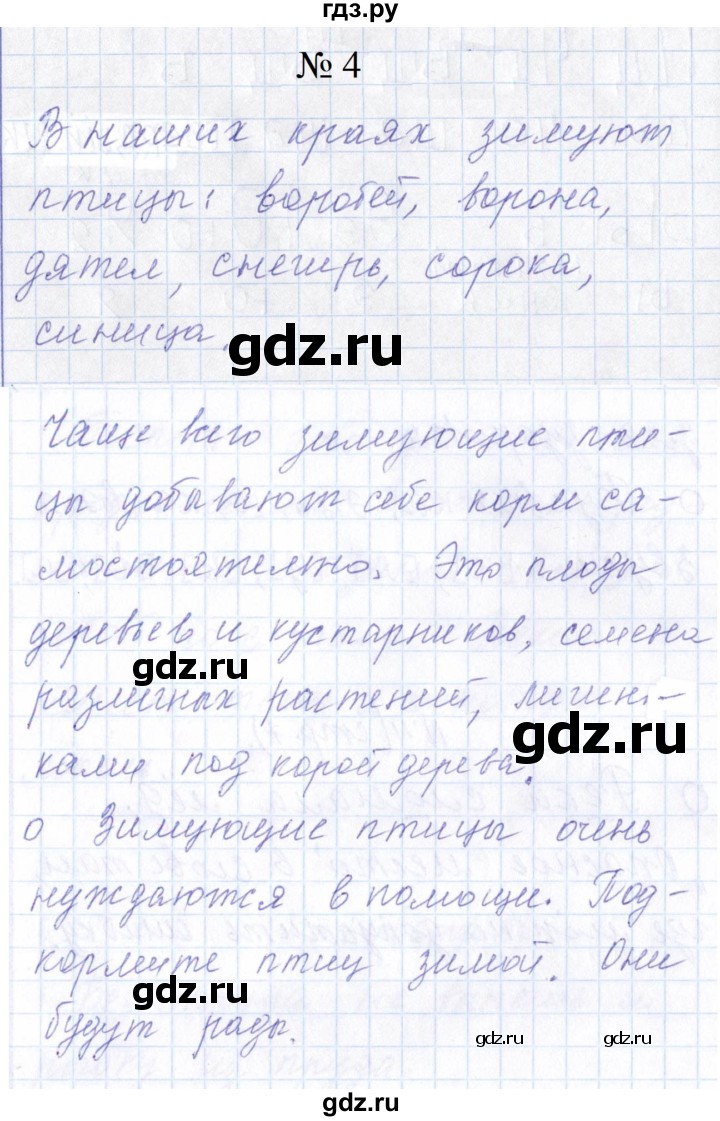 гдз.ру
№ 4
В наших краях зимуют
птицы: воробей, ворона,
дятел, снегирь, сорока,
синица.
gdz.ru
Чаще всего зимующие пти-
цы добывают себе корм са-
мостоятельно. Это плоды
деревьев и кустарников, семена
gdz.ru
различных растений, личин-
gdz.ru
ками под корой дерева.
о Зимующие птицы очень
нуждаются в помощи. Под-
кормите птиц зимой. Они
gdz.ru
будут рады.
gdz.ru
gdz.ru
gdz.ru